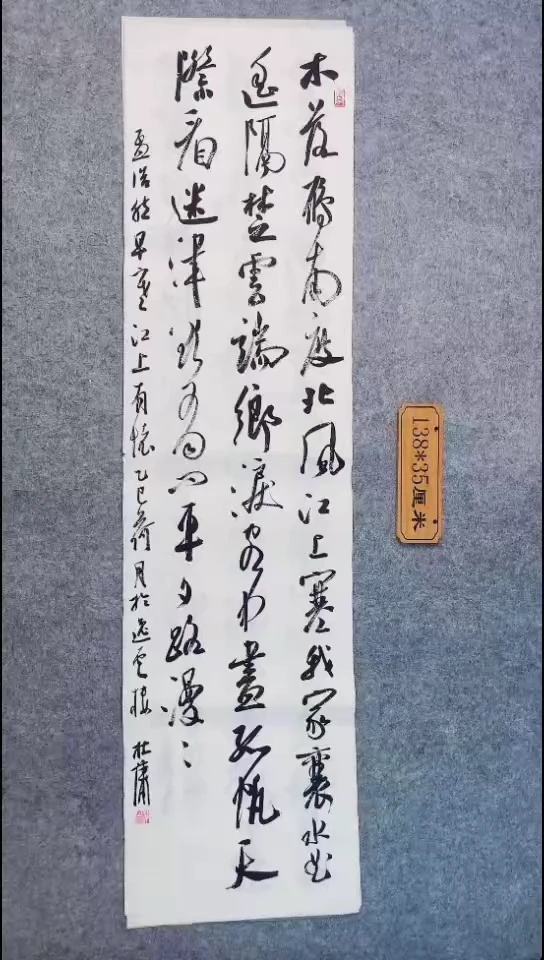 木落雁南度北風江上寒我家襄水曲
遥隔楚雲端鄉淚客中盡孤帆天
際看迷津欲有問夕路漫〻
孟浩然早寒江上有懷乙巳荷月於逸雲樓 杜
138*35厘米